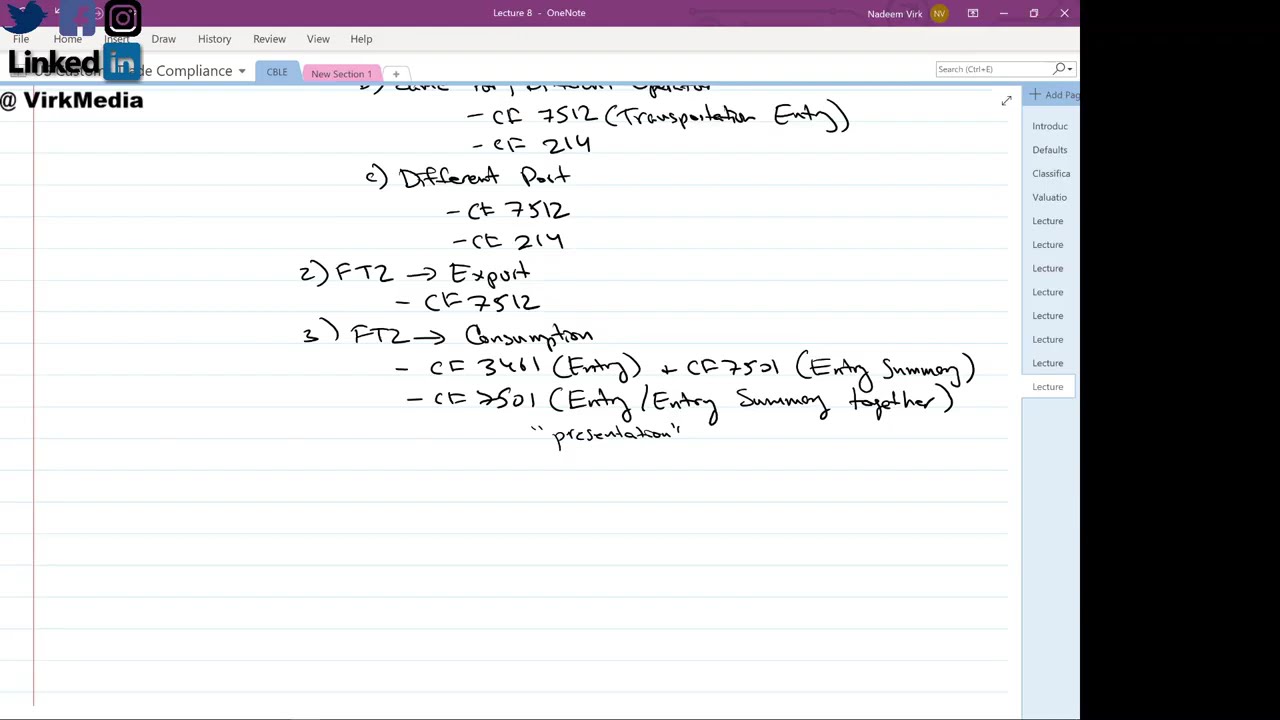 Lecture 8 - OneNote
Nadeem Virk NV
File Home Insert Draw History Review View Help
Linked in
Trade Compliance
CBLE
New Section 1
+
Search (Ctrl+E)
@ VirkMedia
+ Add Pag
Introduc
Defaults
Classifica
Valuatio
Lecture
Lecture
Lecture
Lecture
Lecture
Lecture
Lecture
Lecture
Different Operator
- CF 7512 (Transportation Entry)
- CF 214
c) Different Port
- CF 7512
- CF 214
2) FTZ → Export
- CF 7512
3) FTZ → Consumption
- CF 3461 (Entry) + CF 7501 (Entry Summary)
- CF 7501 (Entry/Entry Summary together)
"presentation"